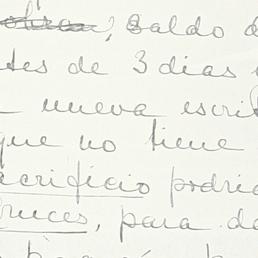 , Saldo d
tes de 3 dias
nueva escrit
que no tiene
acrificio podria
ruces, para de